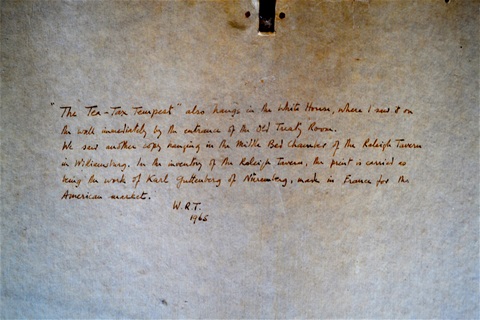 "The Tea-Tax Tempest" also hangs in the White House, where I saw it on
the wall immediately by the entrance of the Old Treaty Room.
We saw another copy hanging in the Middle Bed Chamber of the Raleigh Tavern
in Williamsburg. In the inventory of the Raleigh Tavern, the print is carried as
being the work of Karl Guttenberg of Nuremberg, made in France for the
American market.
W.R.T.
1965